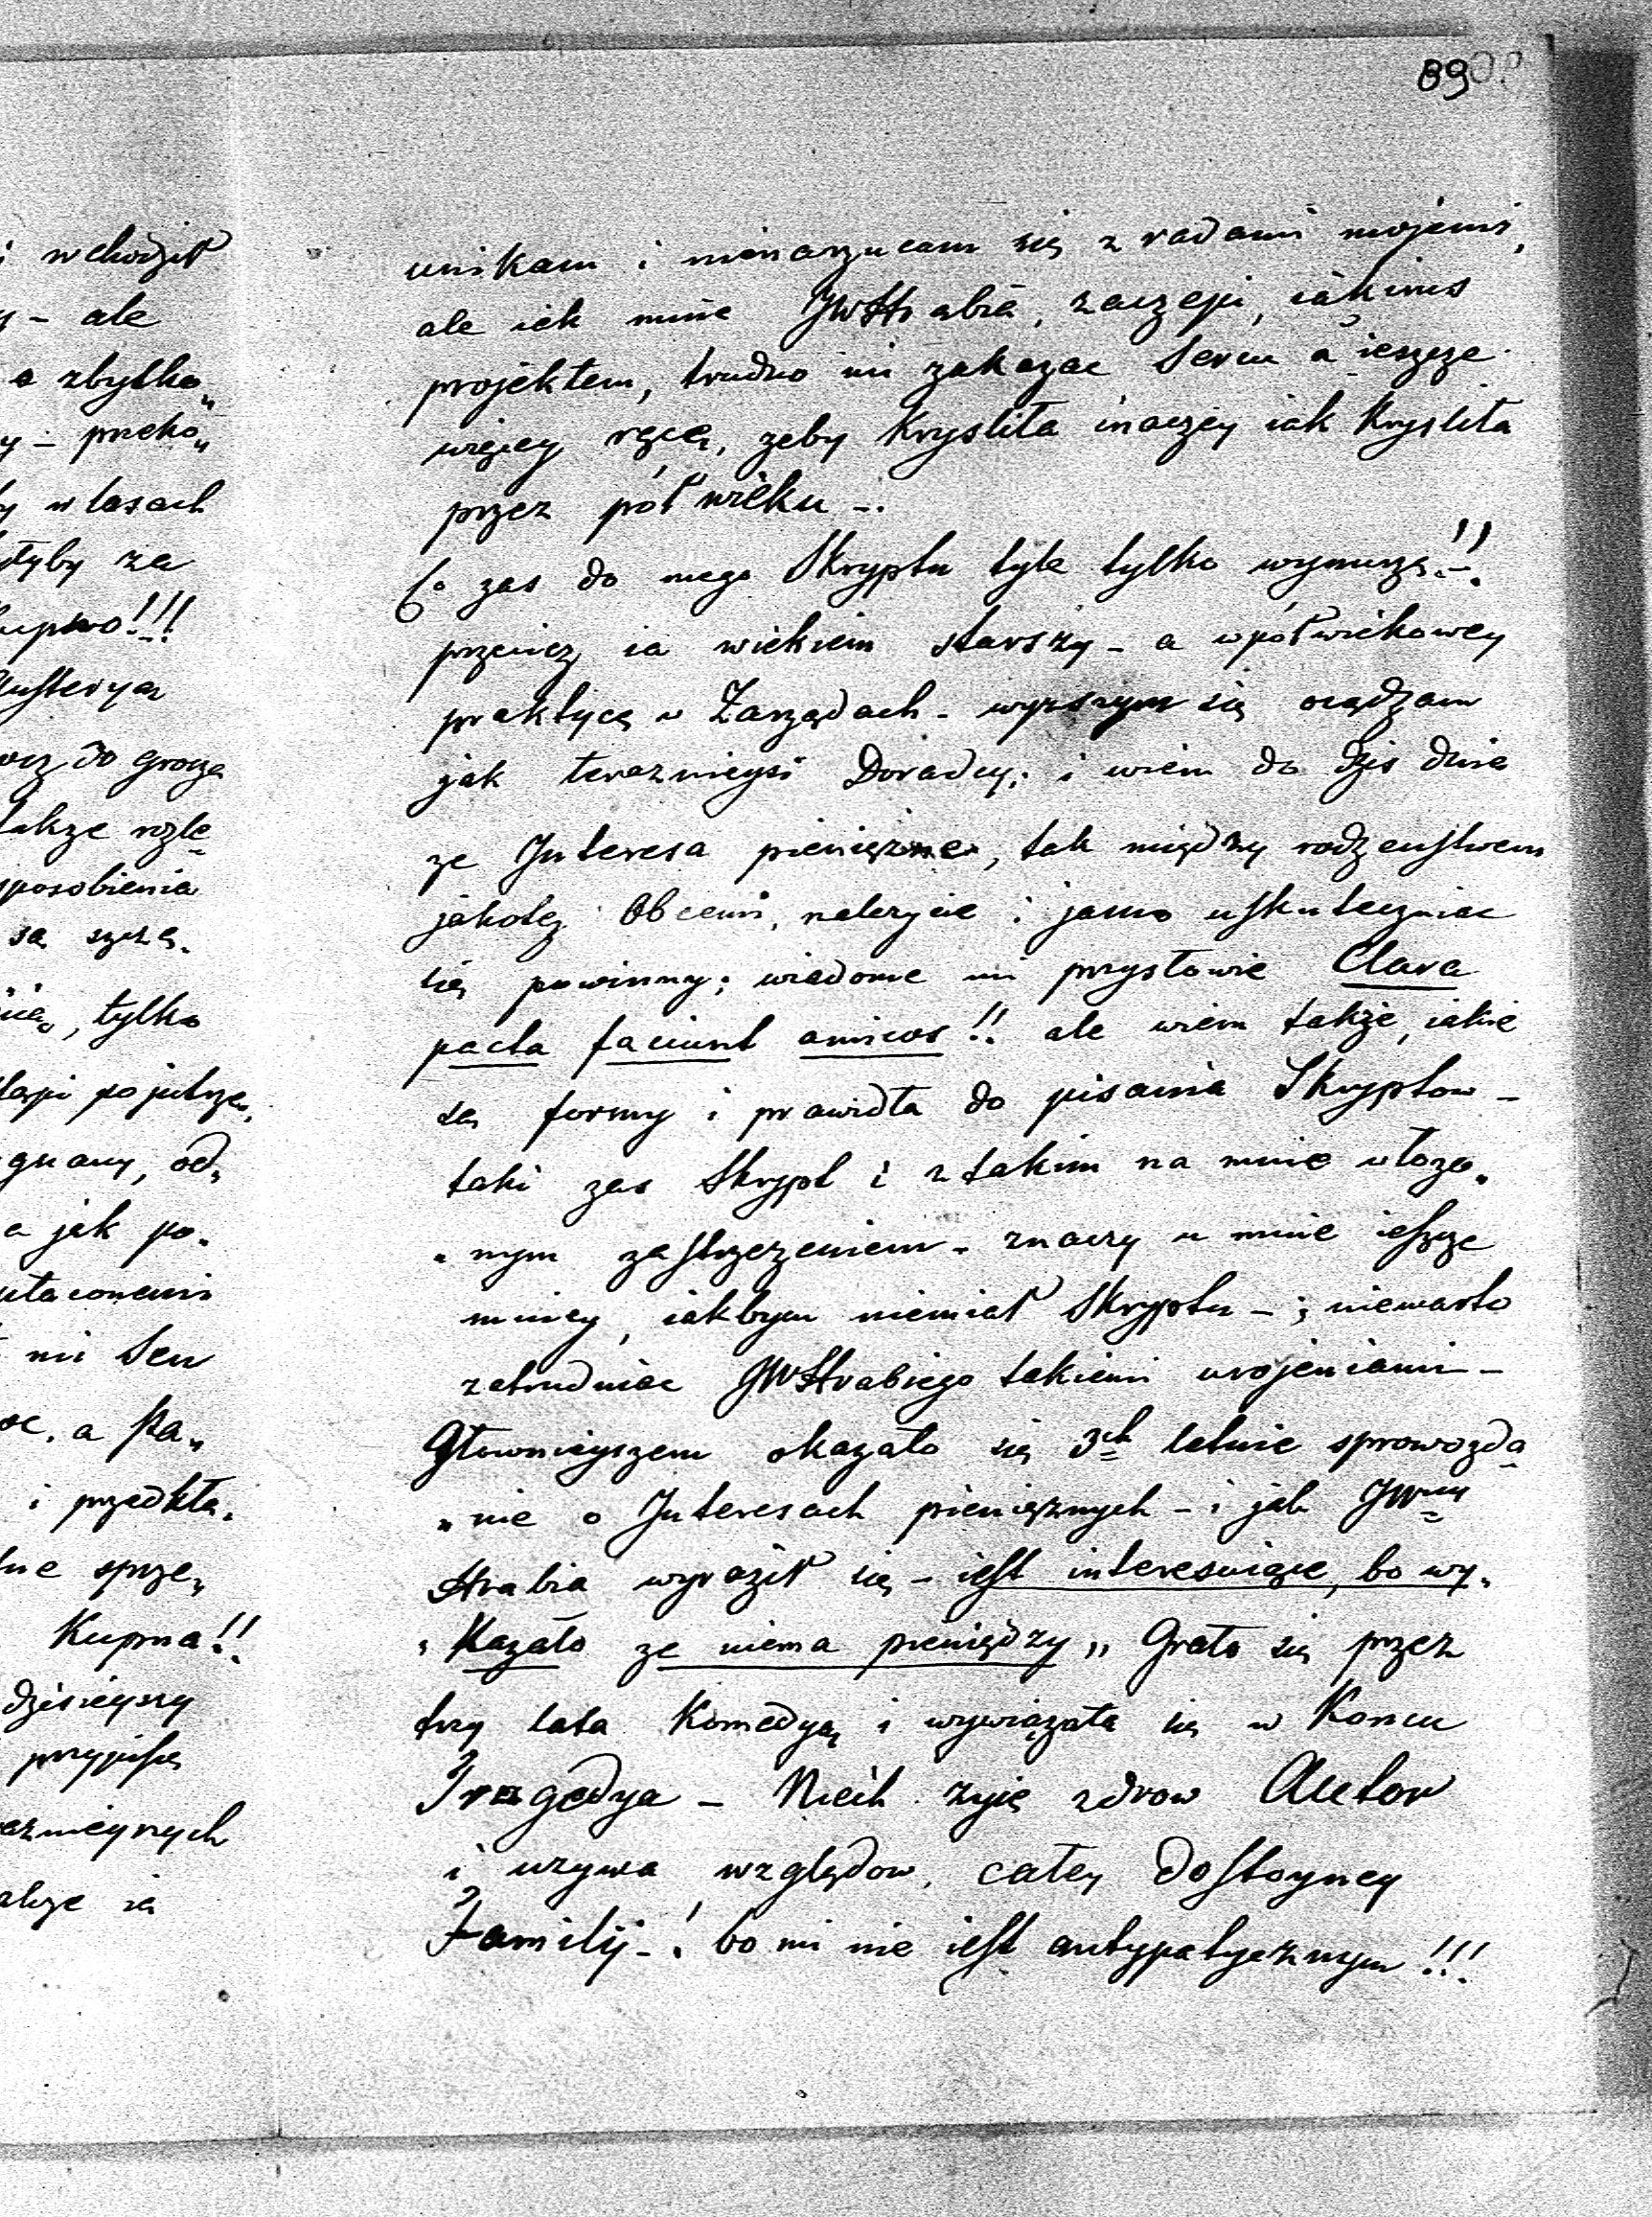 89
unikam i nienarzucam się z radami mojemi,
ale iek mnie JWHrabia, zaczepi, iakims
projektem, trudno mi zakazac Sercu a ieszcze
więcey ręce, zeby krysliła inaczey iak kryslita
przez pół wieku -.
Co zas do mego Skryptu tyle tylko wymurzę -!!
przeciez ia wiekiem starszy - a wpółwiekowey
praktycę w Zarządach - wyzszym się osądzam
jak teraznieysi Doradcy; i wiem do dzis dnia
ze Interesa pieniężne, tak między rodzenstwem
jakotez Obcemi, nalezycie i jasno uskuteczniac
się powinny; wiadome mi przysłowie Clara
pacta faciunt amicos!! ale wiem także, iakie
są formy i prawidła do pisania Skryptow -
taki zas Skrypt i z takim na mnie włozo„
„nym zastrzezeniem - znaczy u mnie ieszcze
mniey, iakbym niemiał Skryptu -; niewarto
zatrudniac JWHrabiego takiemi urojeniami -
Głownieyszem okazało się 3ch letnie sprawozda
„nie o Interesach pieniężnych - i jak JWny
Hrabia wyraził się - iest interesuiące, bo wy„
„kazało ze niema pieniędzy„ Grało się przez
trzy lata Komedyą i wywiązała się w Koncu
Tragedya - Niech zyie zdrow Autor
i uzywa względow, całey dostoyney
Familij -! bo mi nie iest antypatycznym!!!
i wchodził
- ale
o zbytko„
y - przeko„
y w lasach
za
do grosza
takze rozle
sposobienia
są
tylko
pojutrze,
od„
a jak po„
mi Sen
a Pa„
i przedkła„
sprze„
Kupna!!
dzisieyszy